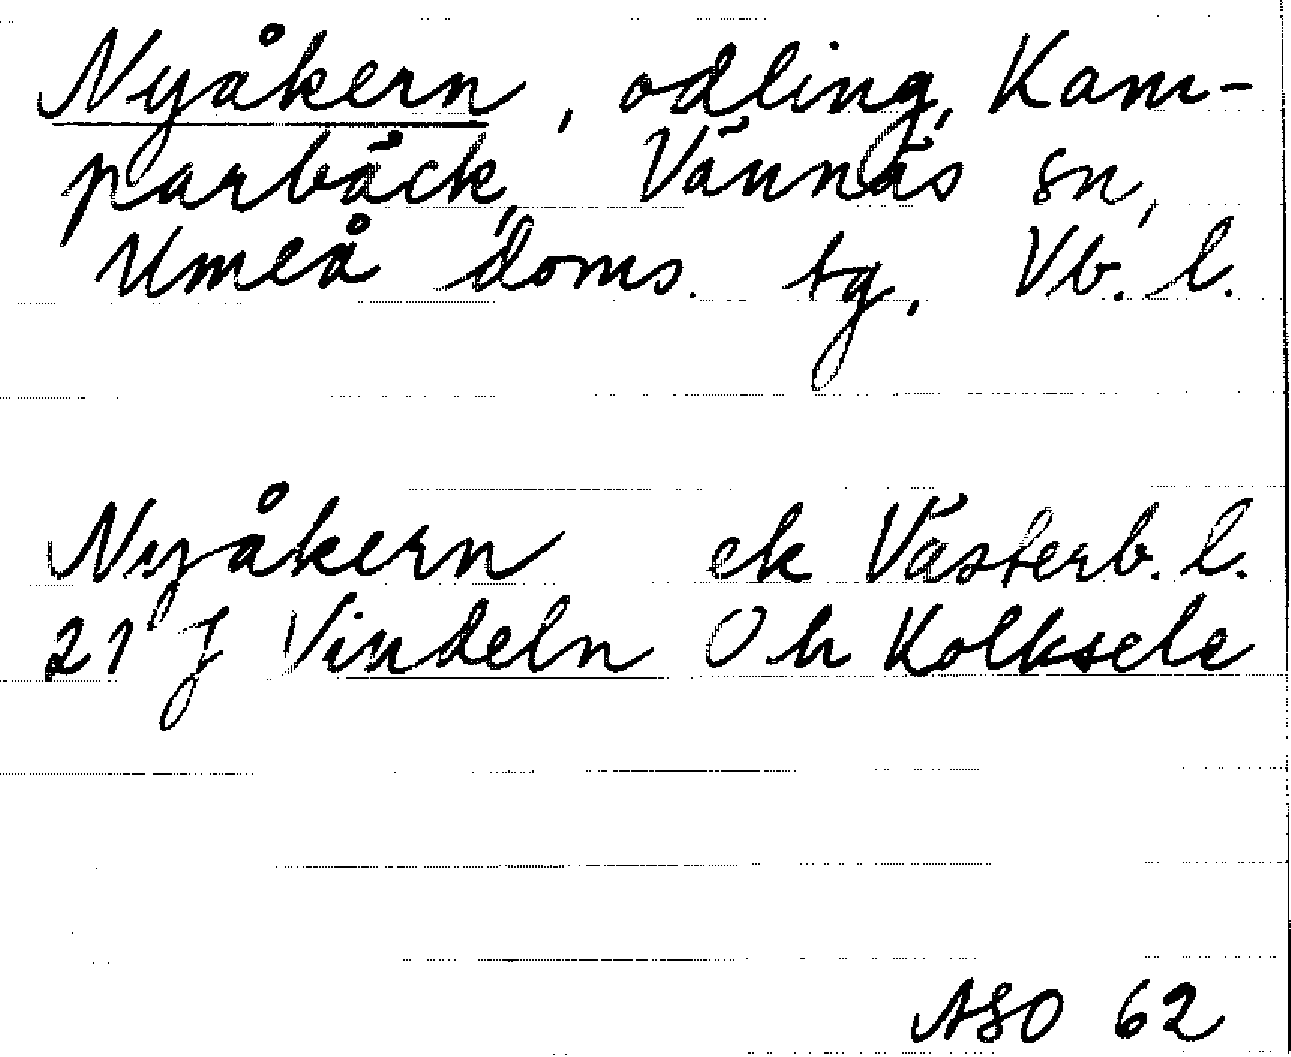 Nyåkern, odling, Kam-
parbäck, Vännäs sn,
Umeå doms. tg. Vb. l.
Nyåkern ek Västerb. l.
21 J Vindeln Oh Kolksele
ASO 62